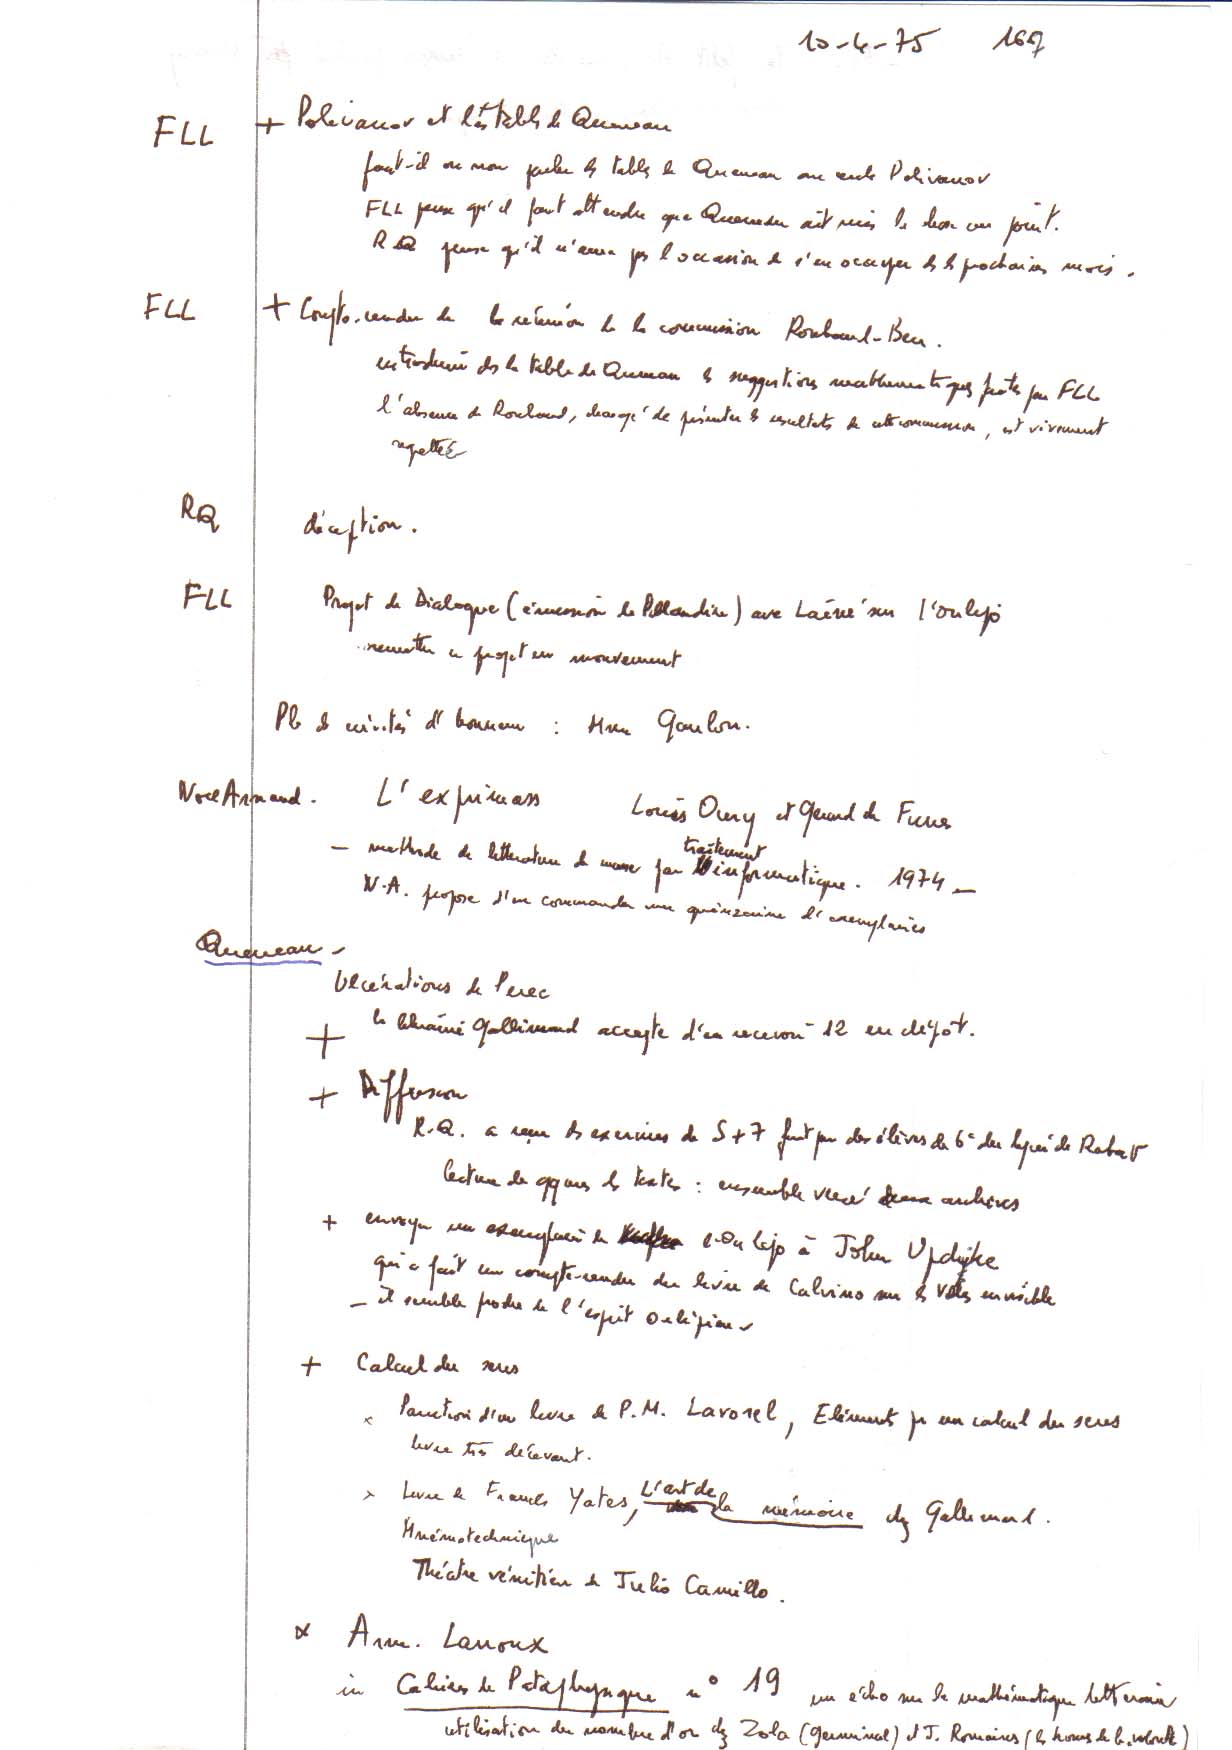 10-4-75 167
FLL + Polivanov et les tables de Queneau
faut-il ou non parler des tables de Queneau au cercle Polivanov
FLL pense qu'il faut attendre que Queneau ait mis la chose au point.
RQ pense qu'il n'aura pas l'occasion de s'en occuper ds les prochains mois.
FLL + Compte-rendu de la réunion de la commission Roubaud-Ben.
introduire ds la table de Queneau les suggestions mathématiques faites par FLL
l'absence de Roubaud, chargé de présenter les résultats de cette commission, est vivement
regrettée
RQ déception.
FLL Projet de Dialogue (émission de Pillaudin) avec Lainé sur l'oulipo
remettre ce projet en mouvement
Pb des invités d'honneur : Mme Goulon.
Noël Arnaud. L'expimass Louis Oury et Gerard de Funes
– méthode de littérature de masse par traitement informatique. 1974 –
N.A. propose d'en commander une quinzaine d'exemplaires
Queneau –
Ulcérations de Perec
+ la librairie Gallimard accepte d'en recevoir 12 en dépôt.
+ Diffusion
R.Q. a reçu des exercices de S+7 fait par des élèves de 6e du lycée de Rabat
lecture de qques uns des textes : ensemble versé aux archives
+ envoyer un exemplaire de l'Oulipo à John Updike
qui a fait un compte-rendu du livre de Calvino sur les villes invisible
– il semble proche de l'esprit oulipien
+ Calcul du sens
x Parution d'un livre de P.M. Lavorel, Eléments pr un calcul du sens
livre très décevant.
x Livre de Francis Yates, L'art de la mémoire chz Gallimard.
Mnémotechnique
Théâtre vénitien de Julio Camillo.
x Arm. Lanoux
in Cahiers de Pataphysique n° 19 un écho sur la mathématique littéraire
utilisation du nombre d'or chz Zola (Germinal) et J. Romains (les hommes de b. volonté)